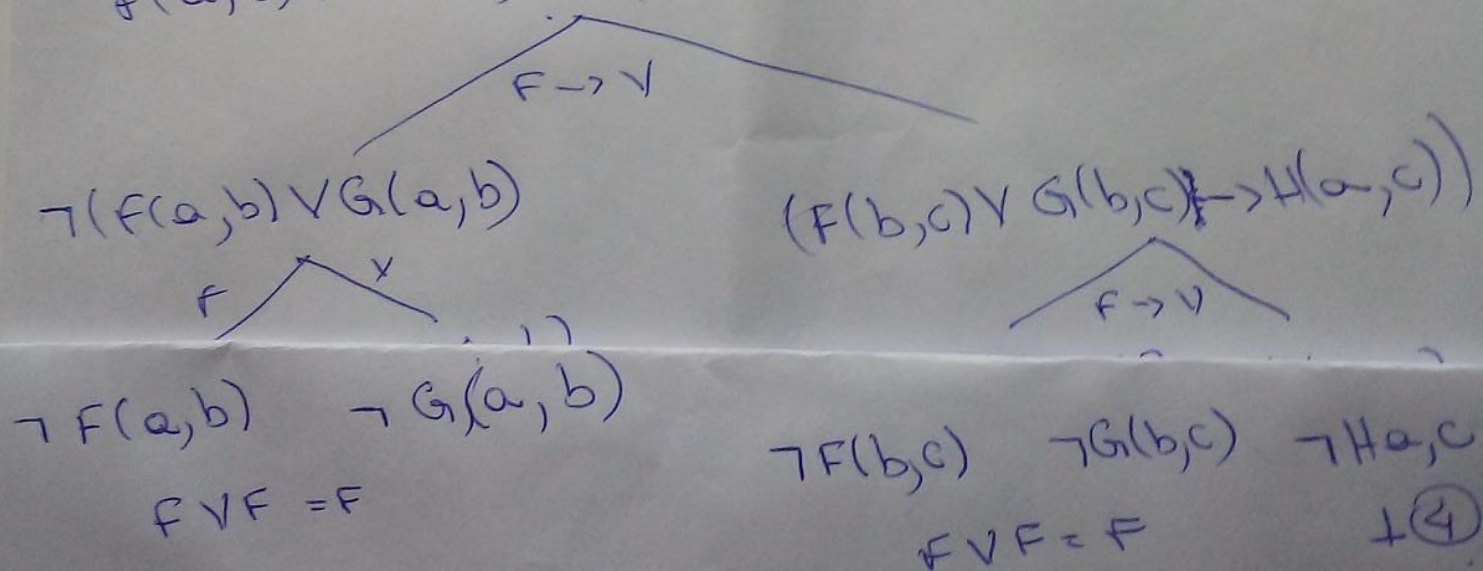 F → V
¬(F(a,b) ∨ G(a,b)
(F(b,c) ∨ G(b,c) → H(a,c))
F
F → V
¬F(a,b) ¬G(a,b)
¬F(b,c) ¬G(b,c) ¬Ha,c
F ∨ F = F
F ∨ F = F
⊥ ④